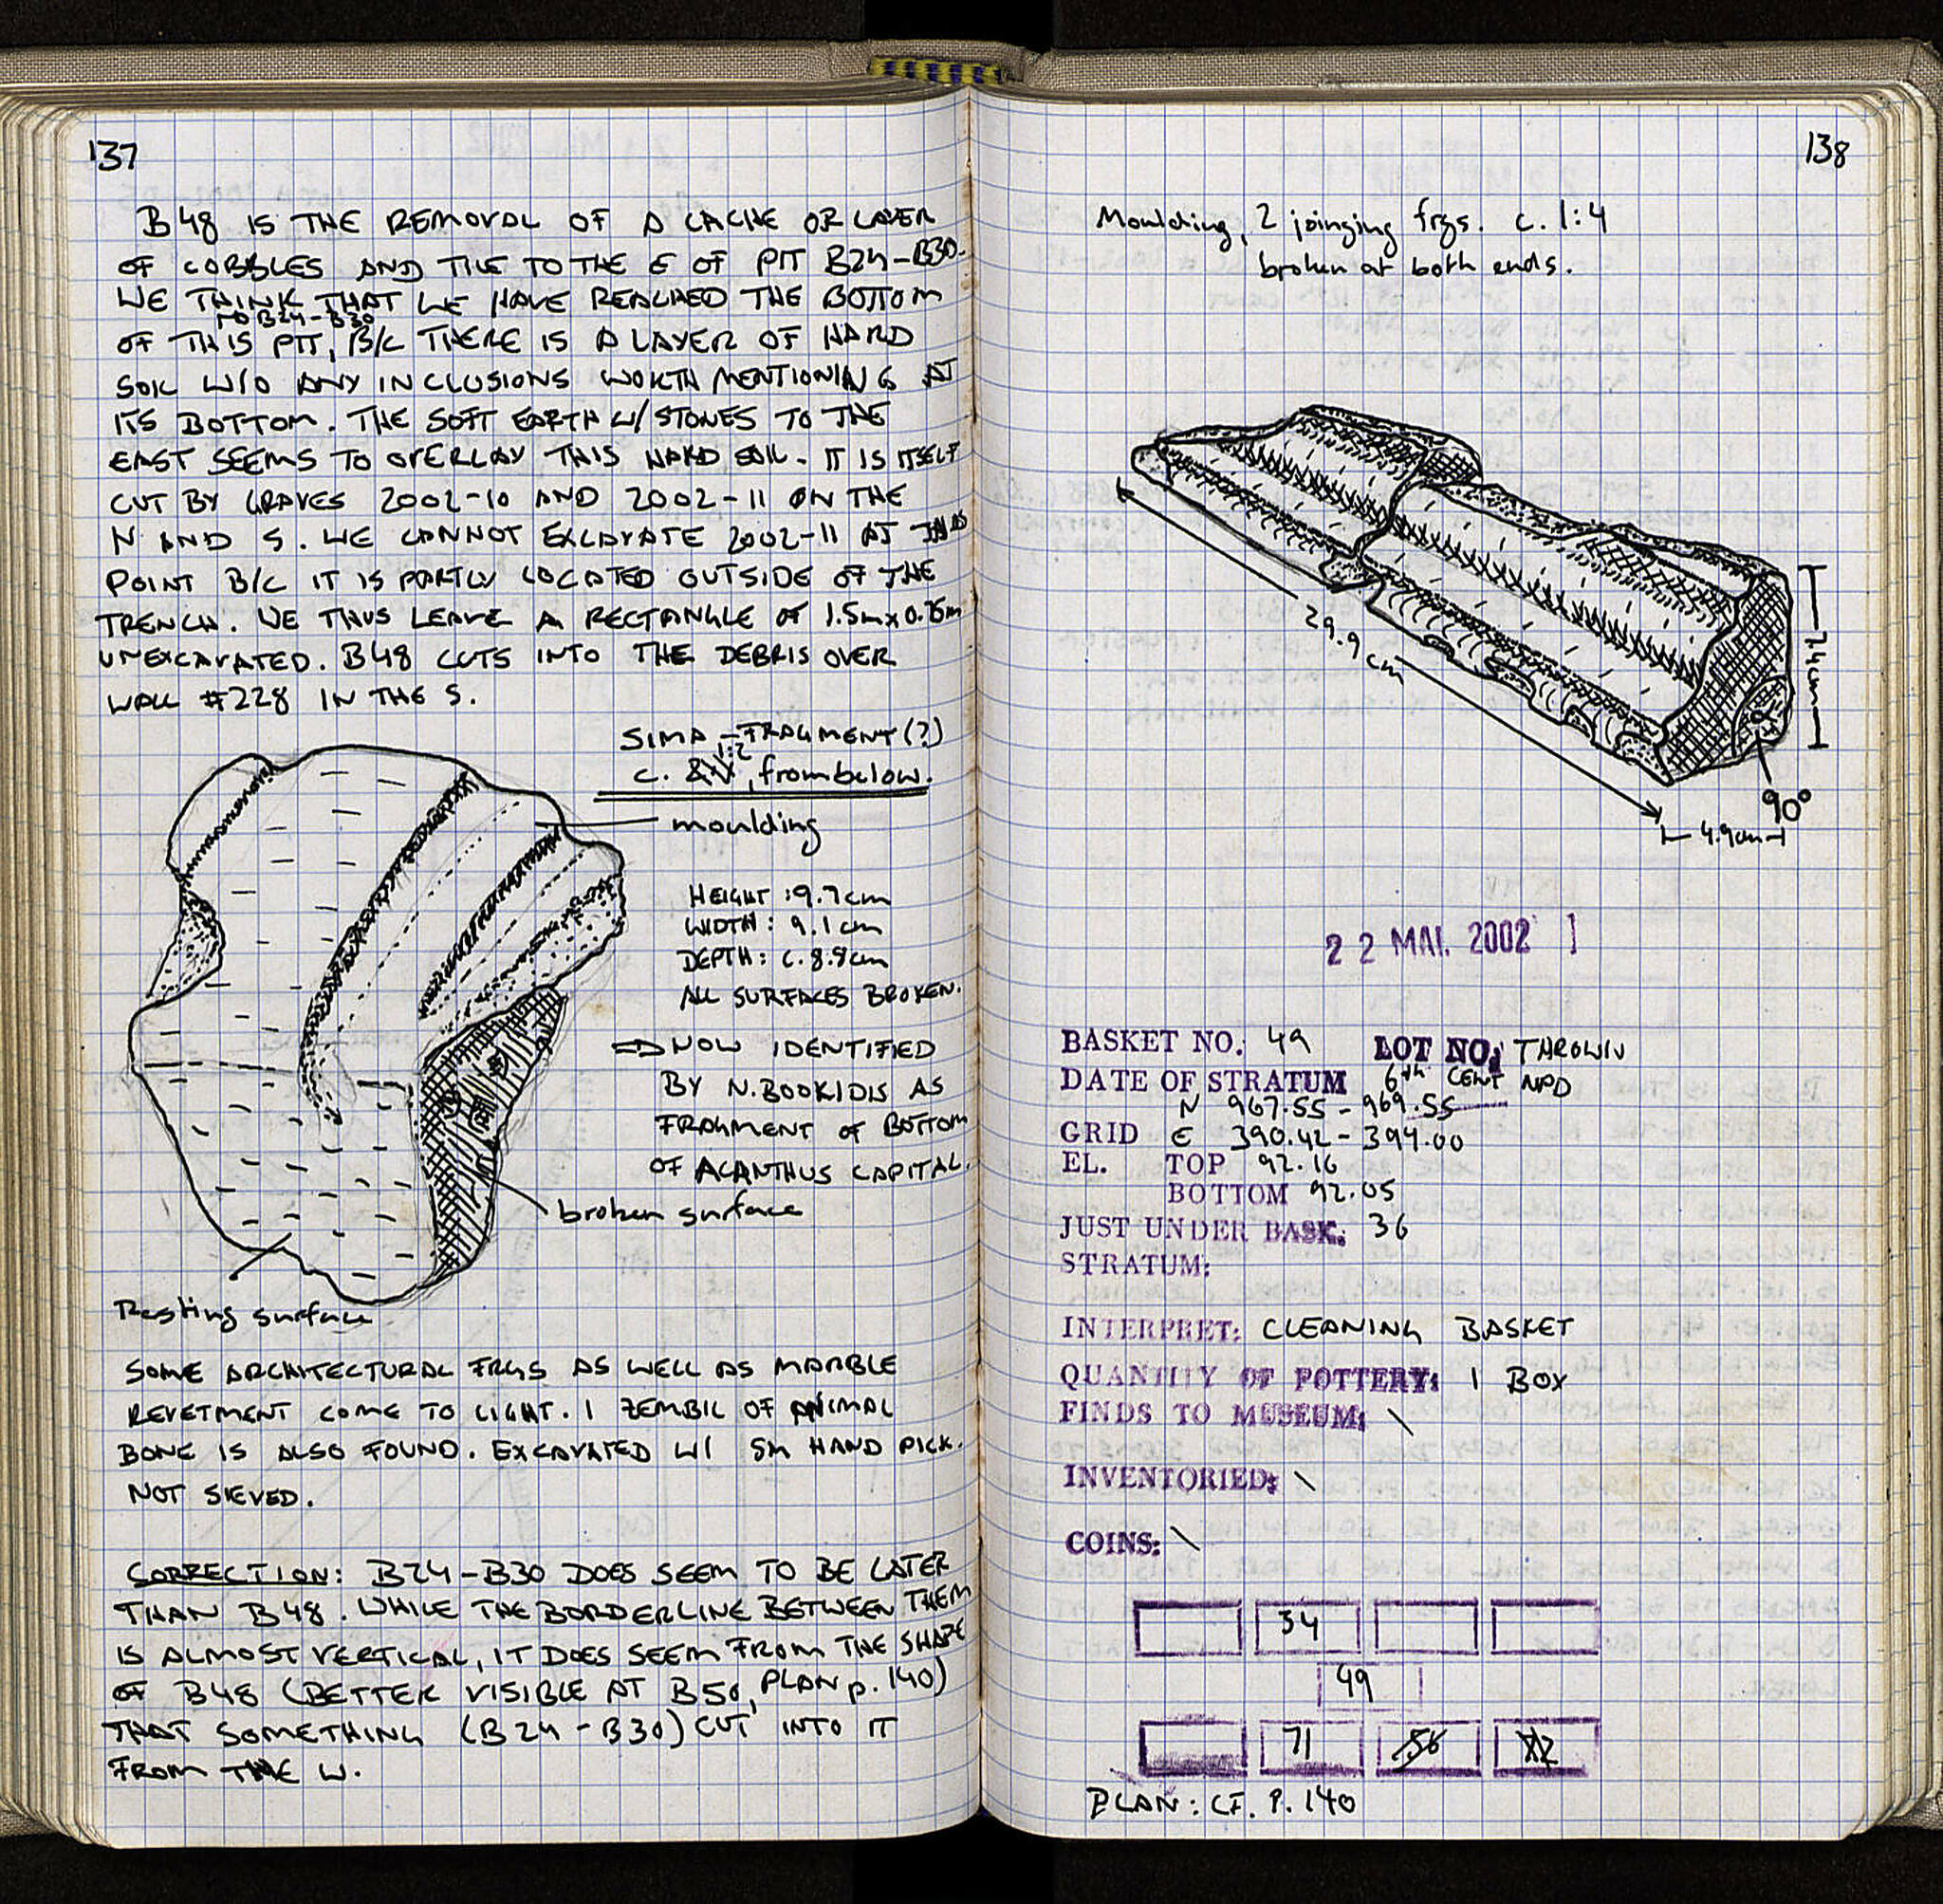 137
B48 IS THE REMOVAL OF A CACHE OR LAYER
OF COBBLES AND TILE TO THE E OF PIT B24-B30.
WE THINK THAT WE HAVE REACHED THE BOTTOM
B24-B30
OF THIS PIT, B/C THERE IS A LAYER OF HARD
SOIL W/O ANY INCLUSIONS WORTH MENTIONING AT
ITS BOTTOM. THE SOFT EARTH W/STONES TO THE
EAST SEEMS TO OVERLAY THIS HARD SOIL. IT IS ITSELF
CUT BY GRAVES 2002-10 AND 2002-11 ON THE
N AND S. WE CANNOT EXCAVATE 2002-11 AT THIS
POINT B/C IT IS PARTLY LOCATED OUTSIDE OF THE
TRENCH. WE THUS LEAVE A RECTANGLE OF 1.5m x 0.75m
UNEXCAVATED. B48 CUTS INTO THE DEBRIS OVER
WALL #228 IN THE S.
SIMA-FRAGMENT(?)
1:2
c. , from below.
moulding
HEIGHT: 9.7cm
WIDTH: 9.1cm
DEPTH: c. 8.9cm
ALL SURFACES BROKEN.
⇒ NOW IDENTIFIED
BY N. BOOKIDIS AS
FRAGMENT OF BOTTOM
OF ACANTHUS CAPITAL.
broken surface
Resting surface
SOME ARCHITECTURAL FRGS AS WELL AS MARBLE
REVETMENT COME TO LIGHT. 1 ZEMBIL OF ANIMAL
BONE IS ALSO FOUND. EXCAVATED W/ SM HAND PICK.
NOT SIEVED.
CORRECTION: B24-B30 DOES SEEM TO BE LATER
THAN B48. WHILE THE BORDERLINE BETWEEN THEM
IS ALMOST VERTICAL, IT DOES SEEM FROM THE SHAPE
OF B48 (BETTER VISIBLE AT B50, PLAN p. 140)
THAT SOMETHING (B24-B30) CUT INTO IT
FROM THE W.
138
Moulding, 2 joinging frgs. c. 1:4
broken at both ends.
29.9 cm
7.4cm
90°
4.9cm
22 MAI. 2002
BASKET NO. 49 LOT NO: THROWN
DATE OF STRATUM 6th CENT NPD
N 967.55-969.55
GRID E 390.42-394.00
EL. TOP 92.16
BOTTOM 92.05
JUST UNDER BASK: 36
STRATUM:
INTERPRET: CLEANING BASKET
QUANTITY OF POTTERY: 1 BOX
FINDS TO MUSEUM: \
INVENTORIED: \
COINS: \
34
49
71 56
PLAN: CF. P. 140